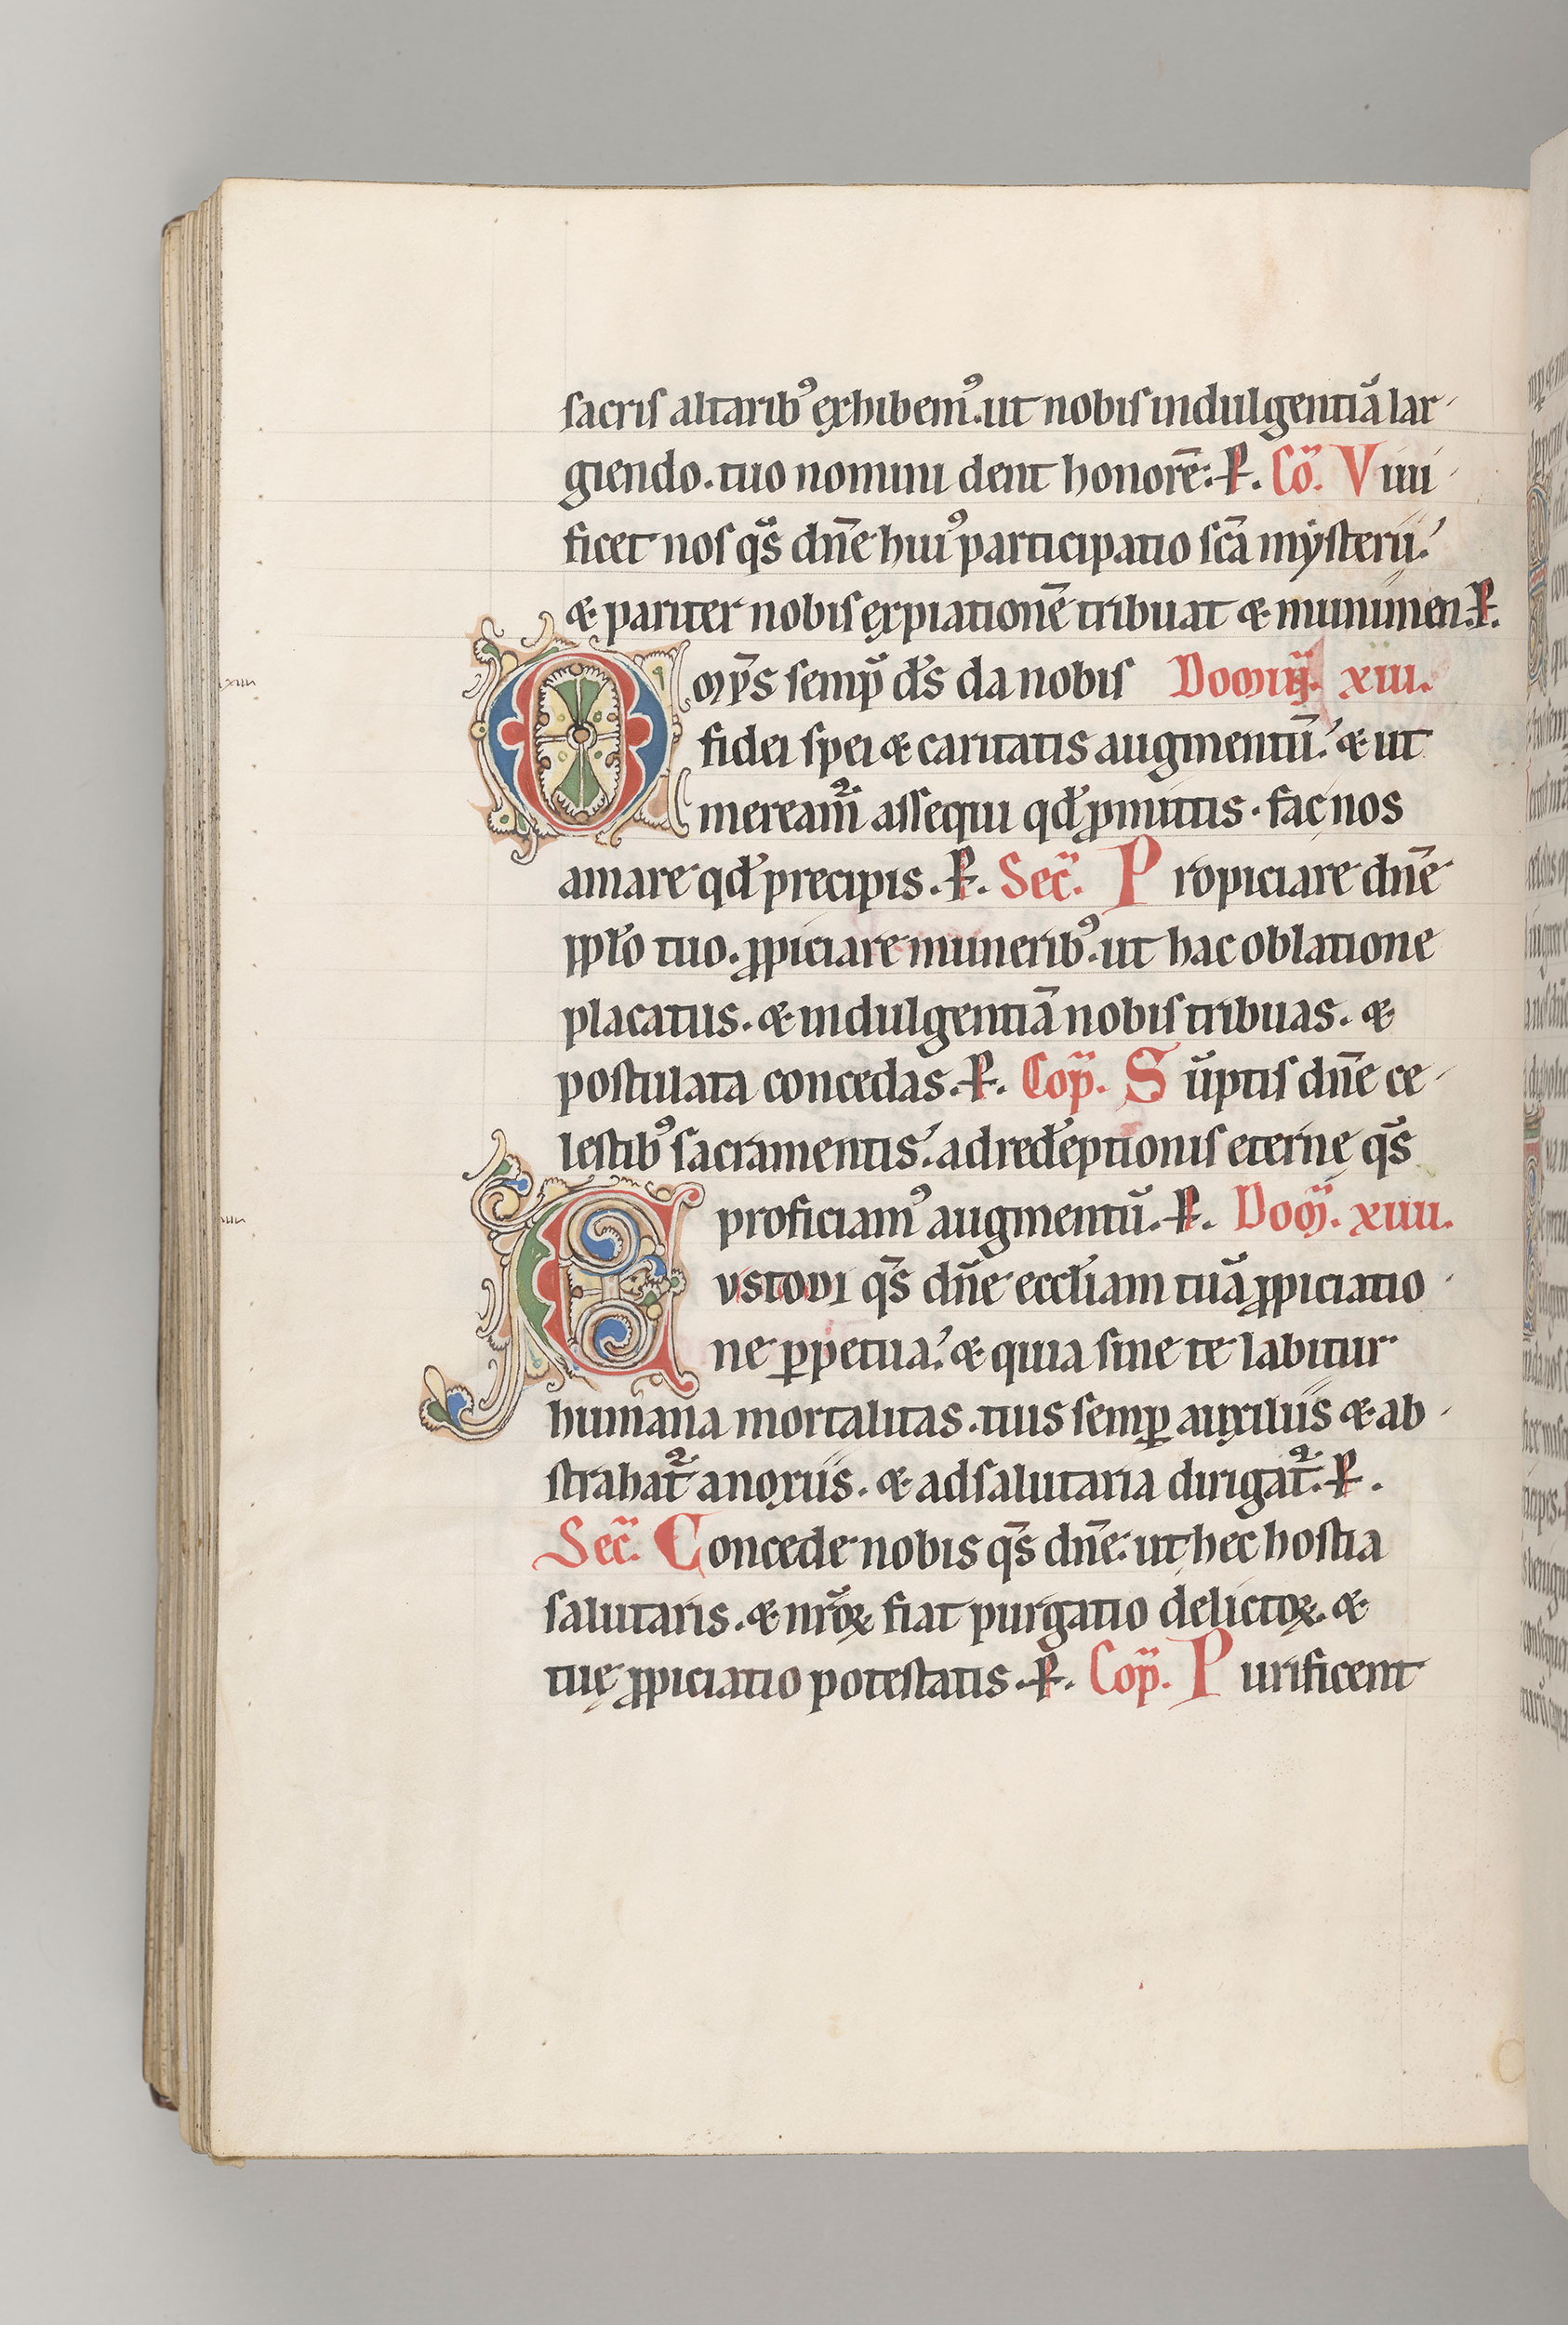 sacris altarib᾽ exhibem᾽. ut nobis indulgentiā lar-
giendo. tuo nomini dent honorē. P. Cō. Viui-
ficet nos qs̄ dn̄e hui᾽ participatio sc̄a mysterii.
& pariter nobis expiationē tribuat & munimen. P.
Omp̄s semp̄ ds̄ da nobis Domin̄. xiii.
fidei spei & caritatis augmentū. & ut
meream̄ assequi qd̄ ꝓmittis. fac nos
amare qd̄ precipis. P. Sec̄. Propiciare dn̄e
pplo tuo. ꝓpiciare munerib᾽. ut hac oblatione
placatus. & indulgentiā nobis tribuas. &
postulata concedas. P. Cop̄. Sūptis dn̄e ce-
lestib᾽ sacramentis. ad redēptionis eterne qs̄
proficiam᾽ augmentū. P. Dom̄. xiiii.
Custodi qs̄ dn̄e eccl̄iam tuā ꝓpiciatio-
ne ꝑpetua. & quia sine te labitur
humana mortalitas. tuis semꝑ auxiliis & ab-
strahat̄ a noxiis. & ad salutaria dirigat̄. P.
Sec̄. Concede nobis qs̄ dn̄e. ut hec hostia
salutaris. & nr̄oꝝ fiat purgatio delictoꝝ. &
tuę ꝓpiciatio potestatis. P. Cop̄. Purificent